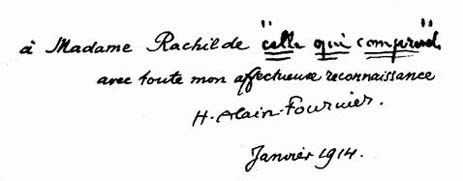 à Madame Rachilde "celle qui comprend"
avec toute mon affectueuse reconnaissance
H. Alain-Fournier.
Janvier 1914.